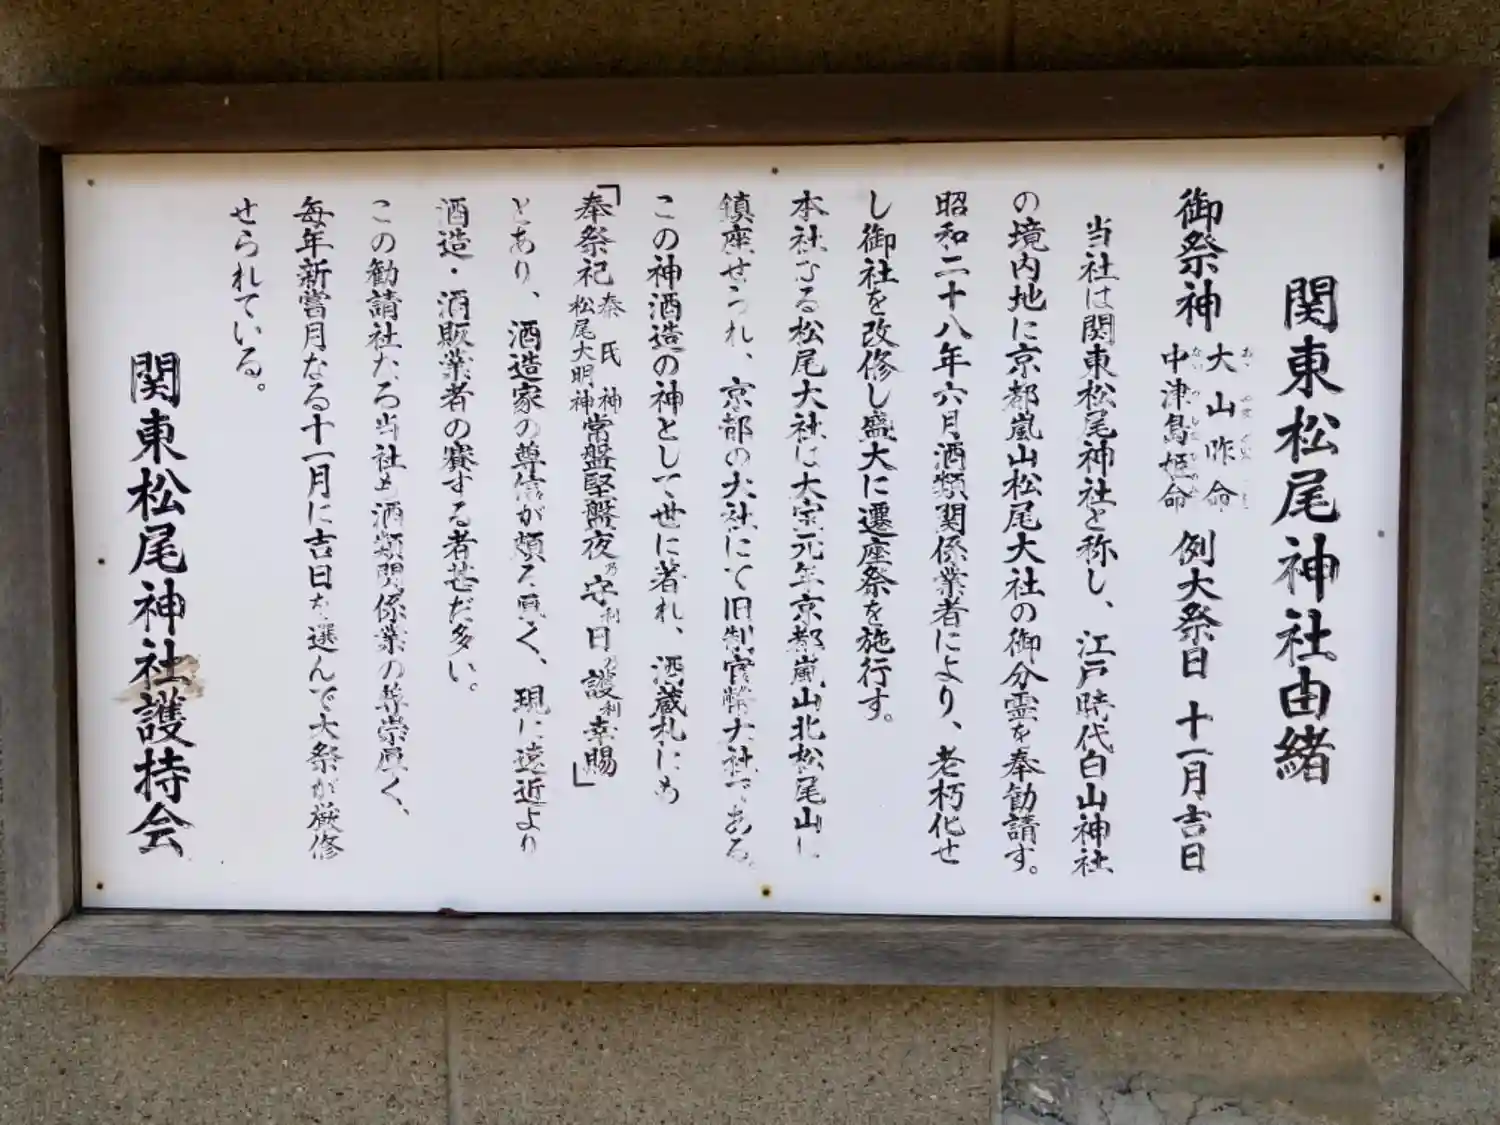 関東松尾神社由緒
御祭神 大山咋命 中津島姫命 例大祭日 十一月吉日
当社は関東松尾神社と称し、江戸時代白山神社
の境内地に京都嵐山松尾大社の御分霊を奉勧請す。
昭和二十八年六月酒類関係業者により、老朽化せ
し御社を改修し盛大に遷座祭を施行す。
本社なる松尾大社は大宝元年京都嵐山北松尾山に
鎮座せられ、京都の大社にて旧制官幣大社である。
この神酒造の神として世に著れ、酒蔵札にも
「奉祭祀 秦氏神 松尾大明神 常盤堅盤夜乃守利日乃護利幸賜」
とあり、酒造家の尊信が頗る厚く、現に遠近より
酒造・酒販業者の賽する者甚だ多い。
この勧請社たる当社も酒類関係業の尊崇厚く、
毎年新嘗月なる十一月に吉日を選んで大祭が厳修
せられている。
関東松尾神社護持会